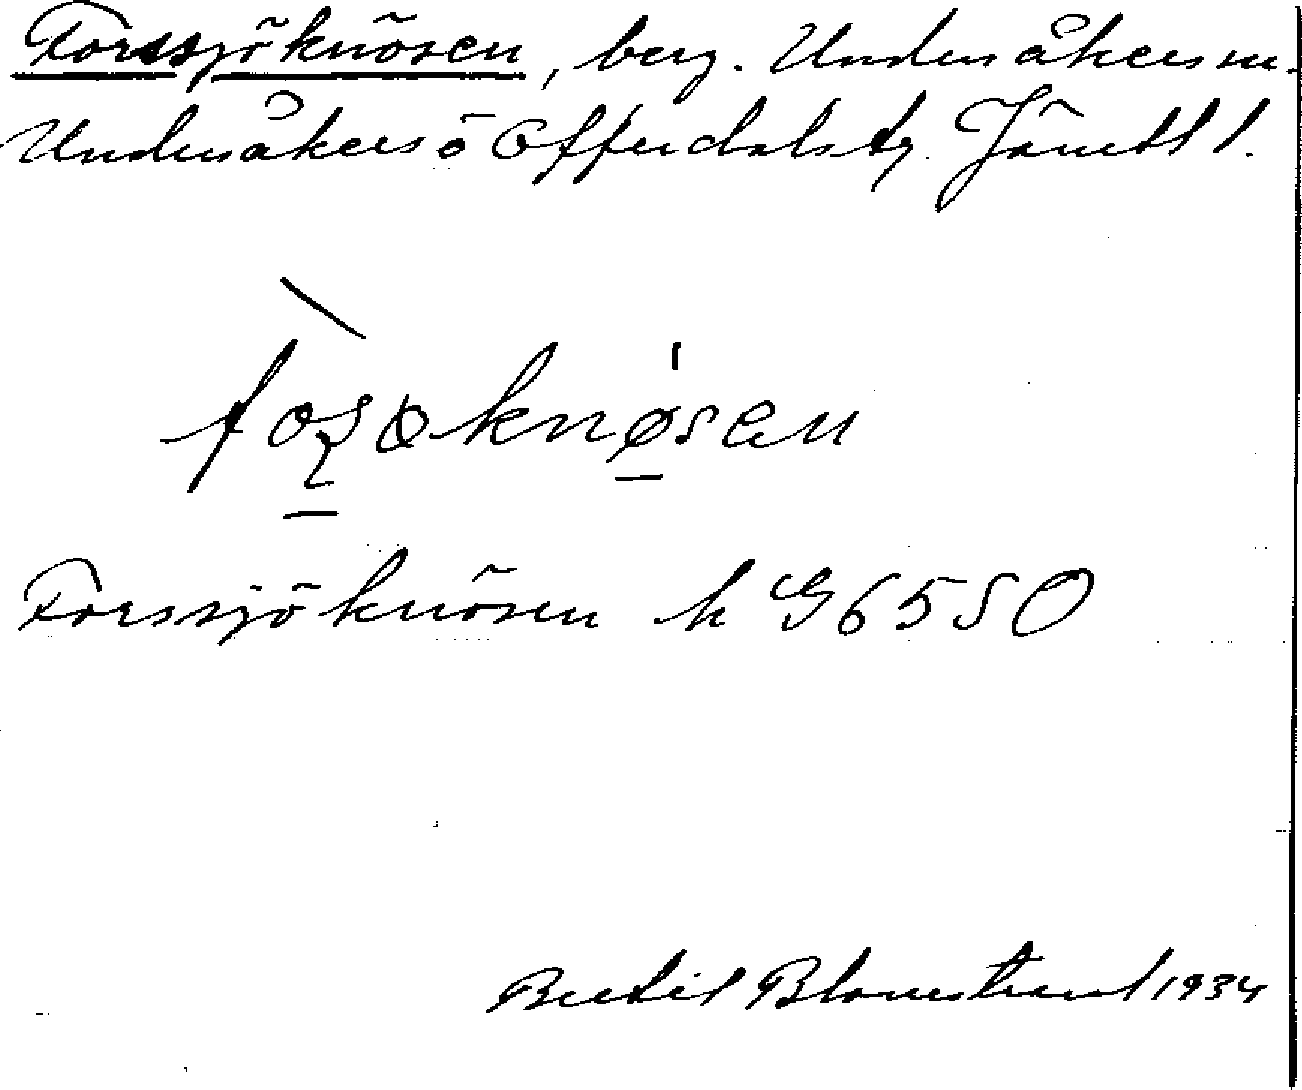 Forssjöknösen, berg. Undersåkers sn.
Undersåkers o Offerdals tg. Jämtl l.
foʂøknøsen
Forssjöknösen k G6550
Bertil Blomstrand 1934